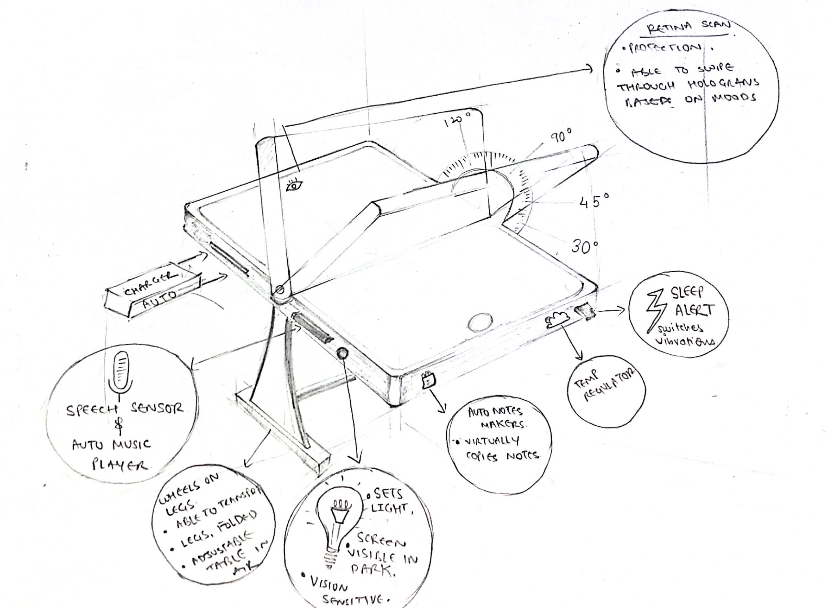 RETINA SCAN
• PROTECTION.
• ABLE TO SWIPE
THROUGH HOLOGRAMS
BASED ON MOODS
120°
90°
45°
30°
CHARGER
AUTO
SLEEP
ALERT
switches
vibrations
TEMP
REGULATOR
SPEECH SENSOR
&
AUTO MUSIC
PLAYER.
AUTO NOTES
MAKERS.
• VIRTUALLY
COPIES NOTES
WHEELS ON
LEGS.
• ABLE TO TRANSPORT
• LEGS, FOLDED
• ADJUSTABLE
TABLE IN
AIR
• SETS
LIGHT.
• SCREEN
VISIBLE IN
DARK.
• VISION
SENSITIVE.